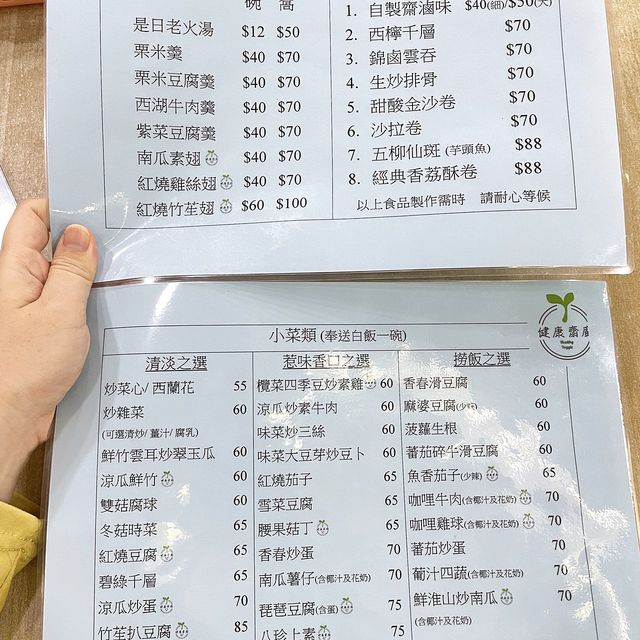 碗 窩
是日老火湯 $12 $50
栗米羹 $40 $70
栗米豆腐羹 $40 $70
西湖牛肉羹 $40 $70
紫菜豆腐羹 $40 $70
南瓜素翅 $40 $70
紅燒雞絲翅 $40 $70
紅燒竹笙翅 $60 $100
1. 自製齋滷味 $40(細)/$50(大)
2. 西檸千層 $70
3. 錦鹵雲吞 $70
4. 生炒排骨 $70
5. 甜酸金沙卷 $70
6. 沙拉卷 $70
7. 五柳仙斑 (芋頭魚) $88
8. 經典香荔酥卷 $88
以上食品製作需時 請耐心等候
健康齋廚
Healthy
Veggie
小菜類 (奉送白飯一碗)
清淡之選
炒菜心/ 西蘭花 55
炒雜菜 60
(可選清炒/ 薑汁/ 腐乳)
鮮竹雲耳炒翠玉瓜 60
涼瓜鮮竹 60
雙菇腐球 60
冬菇時菜 65
紅燒豆腐 65
碧綠千層 65
涼瓜炒蛋 70
竹笙扒豆腐 85
惹味香口之選
欖菜四季豆炒素雞 60
涼瓜炒素牛肉 60
味菜炒三絲 60
味菜大豆芽炒豆卜 60
紅燒茄子 65
雪菜豆腐 65
腰果菇丁 65
香春炒蛋 70
南瓜薯仔(含椰汁及花奶) 70
琵琶豆腐(含蛋) 75
八珍上素 75
撈飯之選
香春滑豆腐 60
麻婆豆腐(少辣) 60
菠蘿生根 60
蕃茄碎牛滑豆腐 60
魚香茄子(少辣) 65
咖哩牛肉(含椰汁及花奶) 70
咖哩雞球(含椰汁及花奶) 70
蕃茄炒蛋 70
葡汁四蔬(含椰汁及花奶) 70
鮮淮山炒南瓜 70
(含椰汁及花奶)